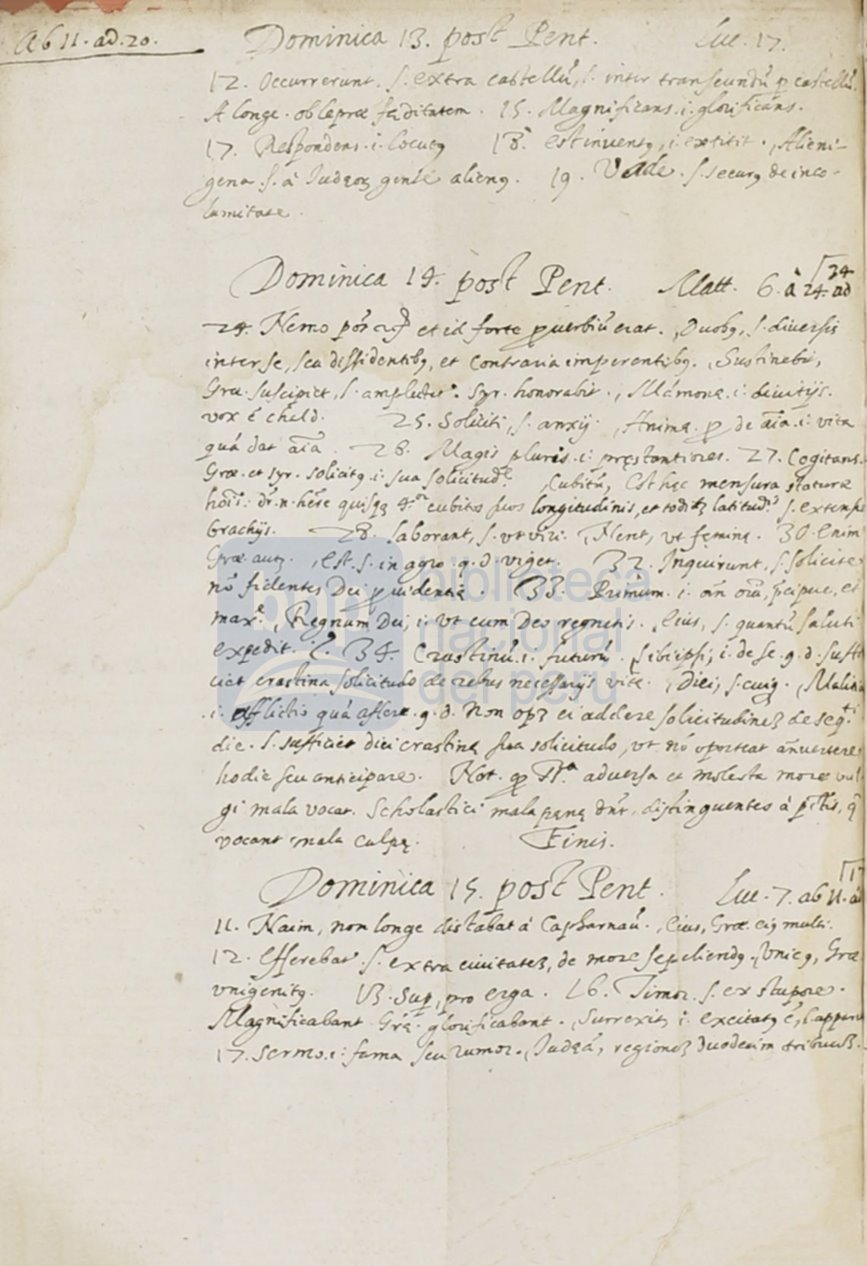 Ab 11. ad. 20.
Dominica 13. post Pent. Luc. 17.
12. Occurrerunt. s. extra castellũ, s. inter transeundũ p castellũ.
A longe. ob lepræ fæditatem. 15. Magnificans. i. glorificans.
17. Respondens. i. locutꝰ 18. est inventꝰ, i. extitit. , Alieni-
gena. s. à Iudęoꝝ gente alienꝰ. 19. Vade. s. securꝰ de inco-
lumitate.
Dominica 14. post Pent. Matt. 6. à 24. ad 34
24. Nemo et id forte ꝓverbiũ erat. , Duobꝰ, s. diversis
inter se, seu dissidentibꝰ, et contraria imperentibꝰ. , Sustinebit,
Græ. suscipiet, s. Syr. honorabit. , Mãmonæ. i. divitijs.
vox ẽ chald. 25. Soliciti, s. anxij. , Animæ. de aĩa. i. vita
quã dat aĩa. 26. Magis pluris. i. pręstantiores. 27. Cogitans.
Græ. et Syr. solicitꝰ. i. sua solicitud.e , Cubitũ, Est hęc mensura staturæ
hoĩs: dr. n. hẽre quisqꝫ 4.or cubitos suos longitudinis, et latitud.s s. extensis
brachijs. 28. laborant, s. vt viri. , Nent, vt feminę. 30. enim
Græ. autꝫ. , est. s. in agro. q. d. viget. 32. Inquirunt, s. solicite
nõ fidentes Dei ꝓvidentię. 33. Primum. i. oĩa, pcipue, et
max.e , Regnum Dei, i. vt cum Deo regnetis. , Eius, s. quantũ saluti
expedit. 34. Crastinũ. i. futurũ. , sibi ipsi, i. de se. q. d. suffi
ciet crastina solicitudo de rebus necessarijs vitę. , Diei, s. cuiqꝫ. , Malitia
. i. afflictio quã affert. q. d. Non opꝫ ei addere solicitudineꝫ de seq.ti
die. s. sufficiet diei crastinę sua solicitudo, vt nõ oporteat
hodie seu anticipare. Not. adversa et molesta more vul
gi mala vocat. Scholastici mala pęnę dnr, distinguentes à q̃
vocant mala culpę. Finis.
Dominica 15. post Pent. Luc. 7. ab 11. ad 17
11. Naim, non longe distabat à Capharnaũ. , Eius, Græ. eiꝰ multi.
12. Efferebat. s. extra civitateꝫ, de more sepeliendꝰ. , Vnicꝰ, Græ
vnigenitꝰ. 13. Sup, pro erga. 16. Timor. s. ex stupore.
Magnificabant Græ. glorificabant. , Surrexit, i. excitatꝰ ẽ,
17. Sermo. i. fama seu rumor. , Iudęã, regioneꝫ duodecim tribuuꝫ.
biblioteca
nacional
del perú